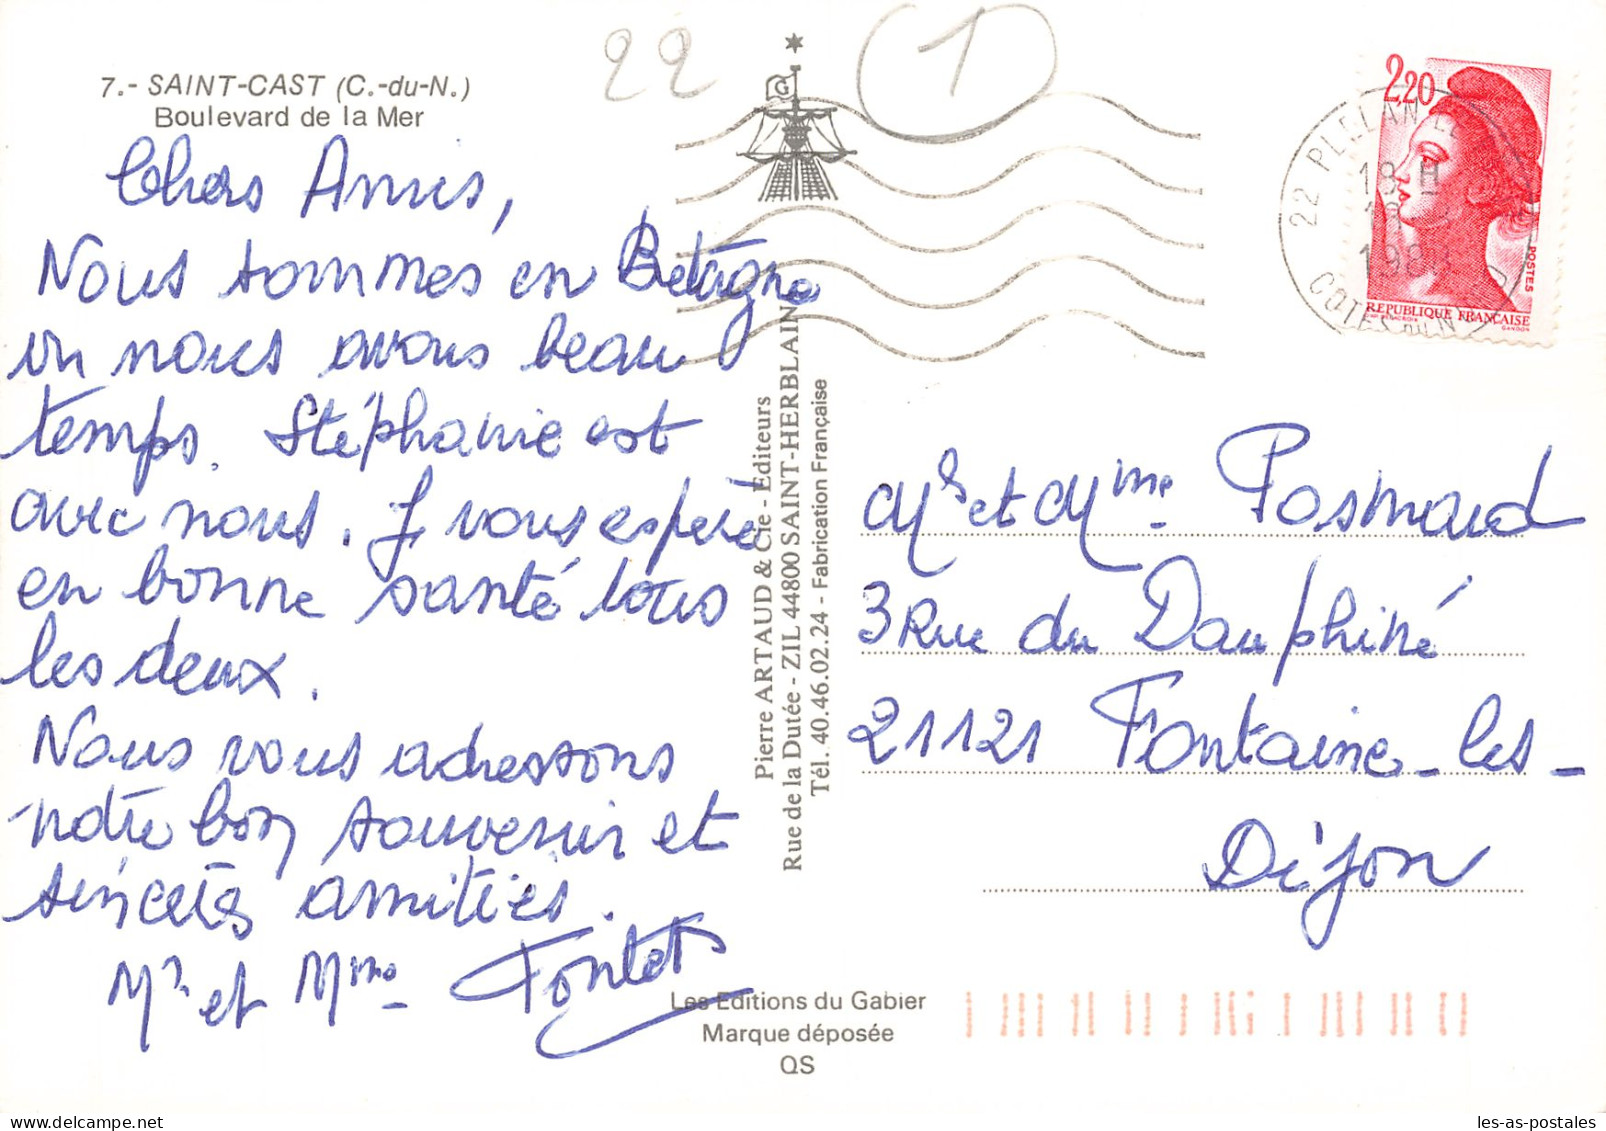 22
1
7.- SAINT-CAST (C.-du-N.)
Boulevard de la Mer
Chers Amis,
Nous sommes en Bretagne
où nous avons beau
temps. Stéphanie est
avec nous. J vous espère
en bonne santé tous
les deux.
Nous vous adressons
notre bon souvenir et
sincères amitiés.
Mr et Mme Fontet
G
Pierre ARTAUD & Cie - Editeurs
Rue de la Dutée - ZIL 44800 SAINT-HERBLAIN
Tél. 40.46.02.24 - Fabrication Française
Les Editions du Gabier
Marque déposée
QS
2,20
POSTES
REPUBLIQUE FRANÇAISE
GANDON
22 PLELAN LE
18 H
COTES DU N
Mr et Mme Posmard
3 Rue du Dauphiné
21121 Fontaine-les-
Dijon
les-as-postales